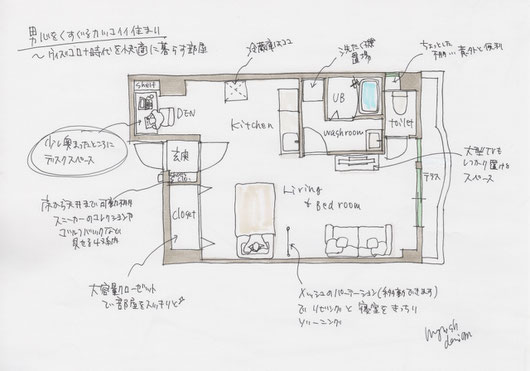 男心をくすぐるカッコイイ住まい
～ウィズコロナ時代を快適に暮らす部屋
冷蔵庫はココ
洗たく機
置場
ちょっとした
棚が…意外と便利
shelf
DEN
Kitchen
UB
washroom
toilet
少し奥まったところに
デスクスペース
玄関
大型TVも
しっかり置ける
スペース
テラス
床から天井まで可動棚
スニーカーのコレクションや
ゴルフバッグなど
見せる収納
closet
Living
+ Bed room
大容量クローゼット
で部屋をスッキリと
メッシュのパーテーション(移動できます)
でリビングと寝室をきっちり
ゾーニング
design